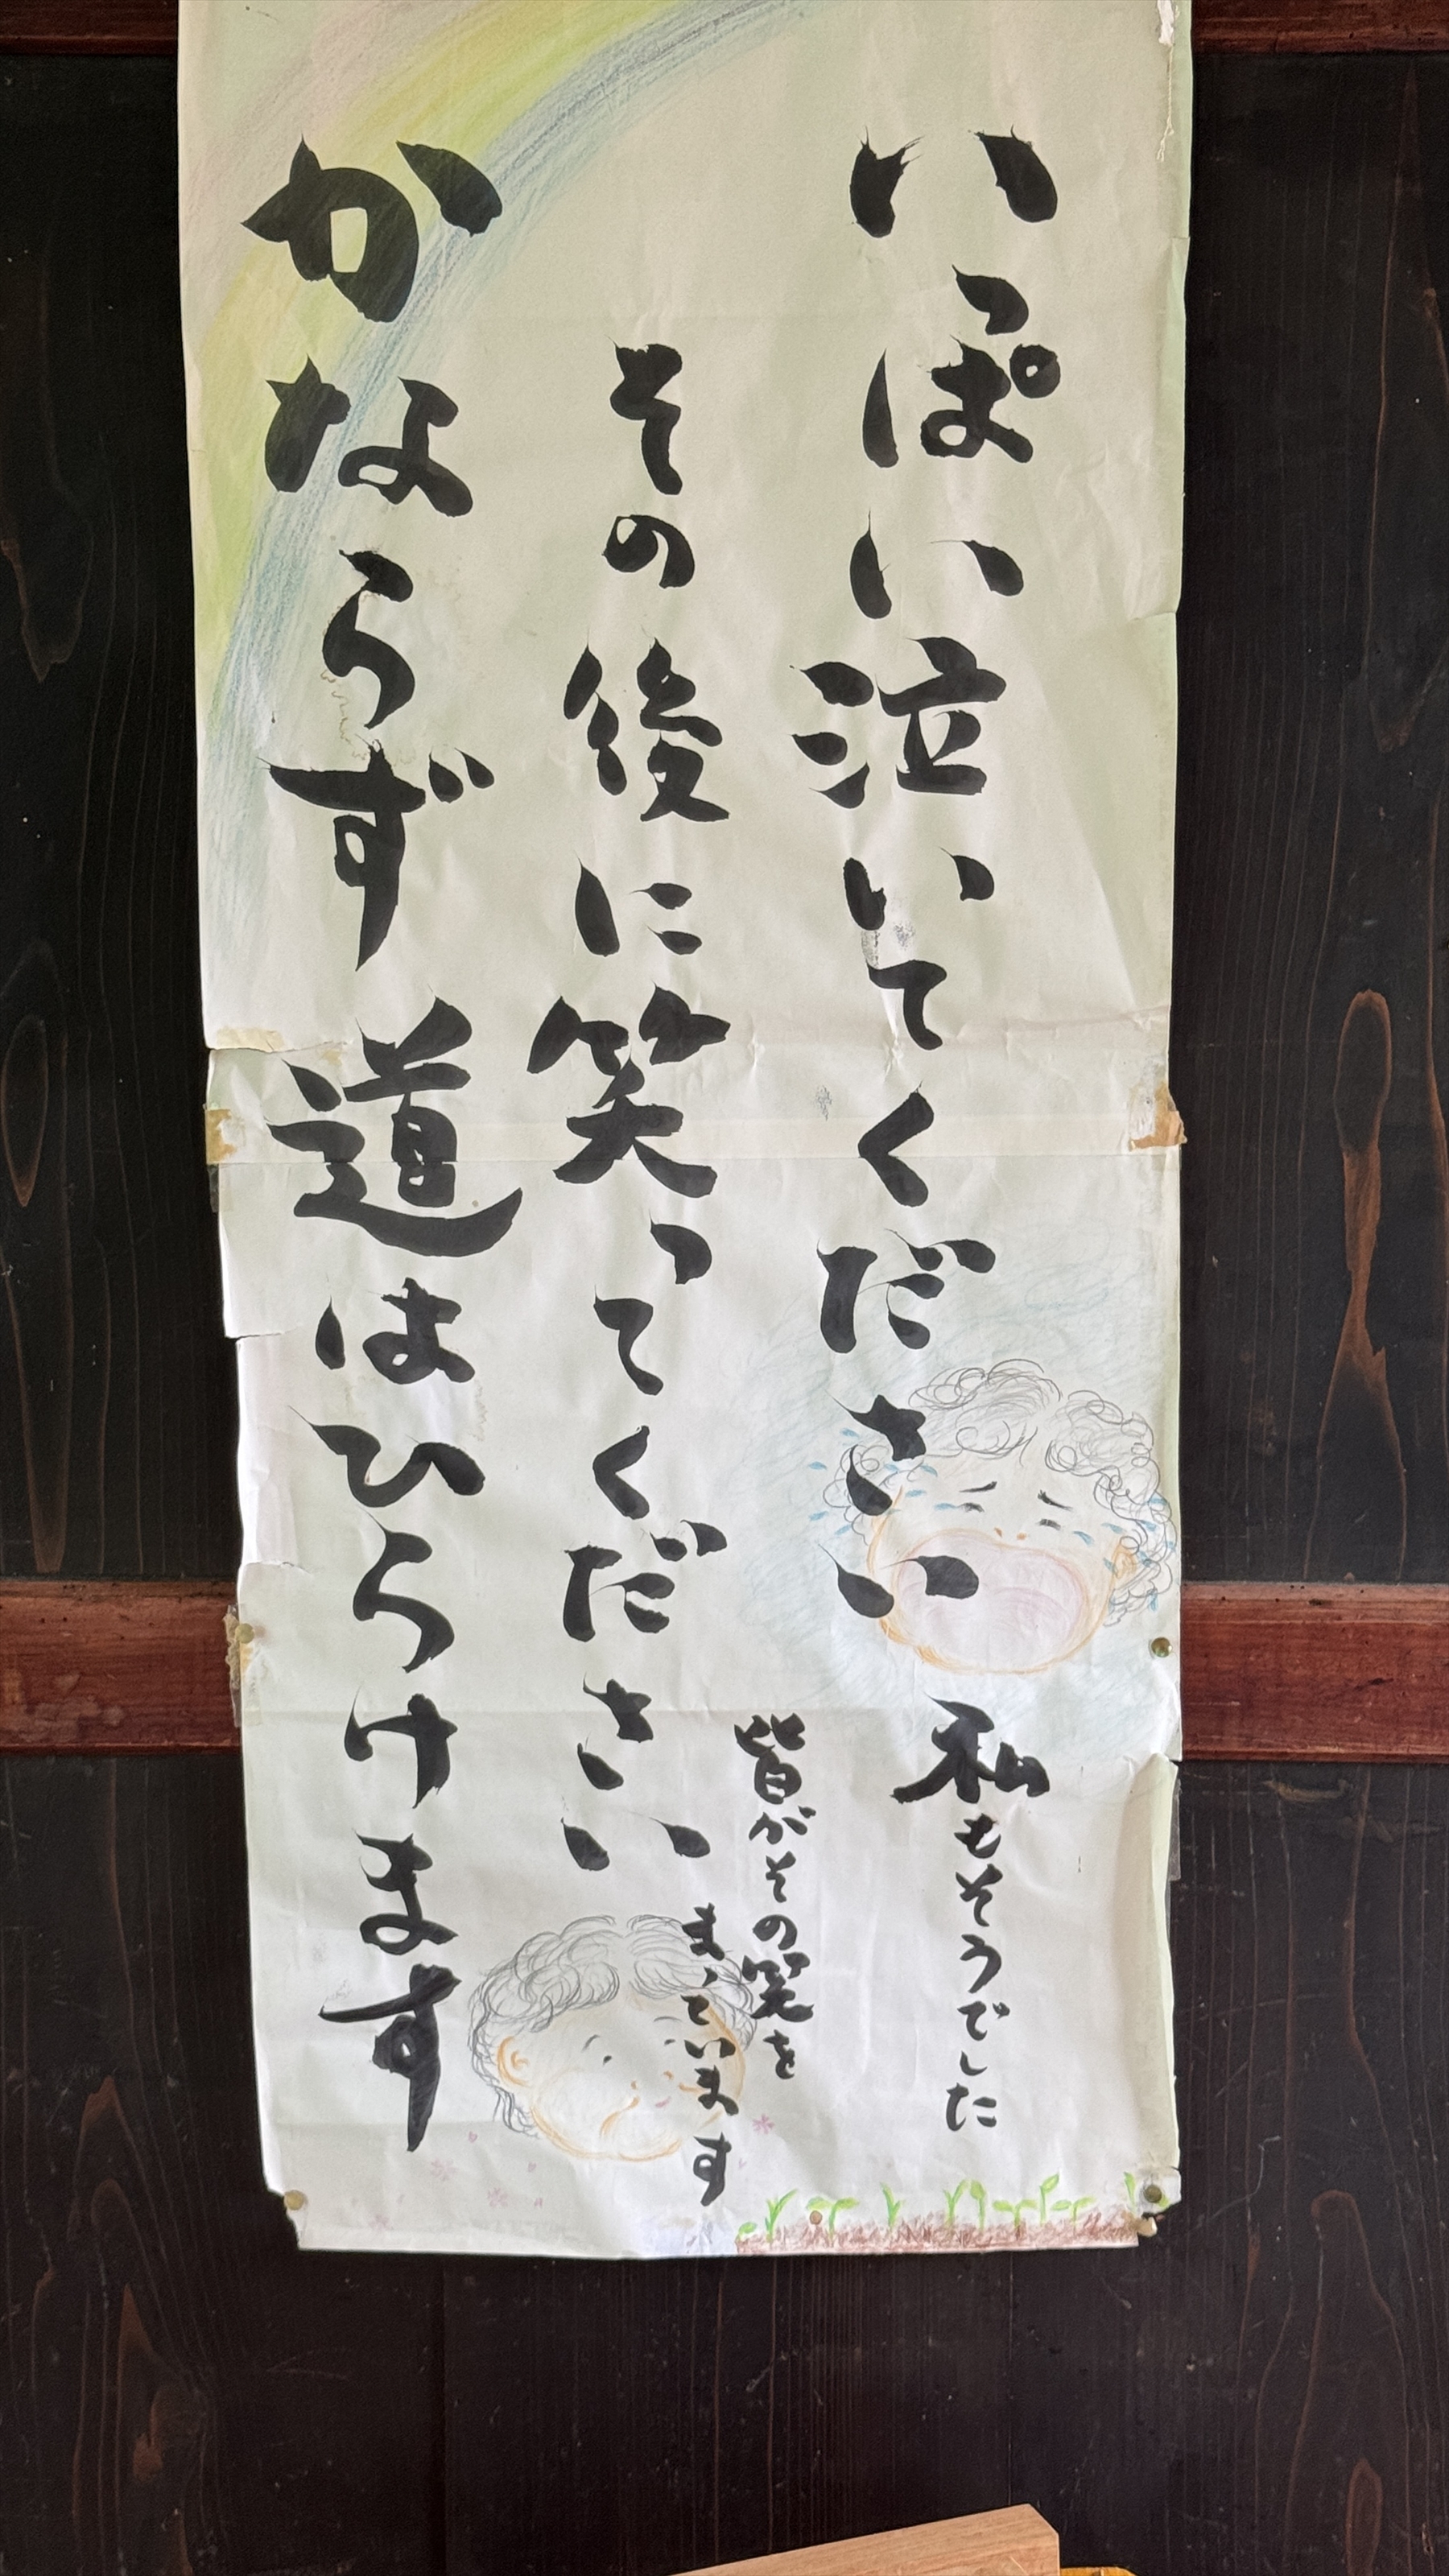 いっぱい泣いてください
私もそうでした
その後に笑ってください
皆がその笑を
まっています
かならず 道はひらけます